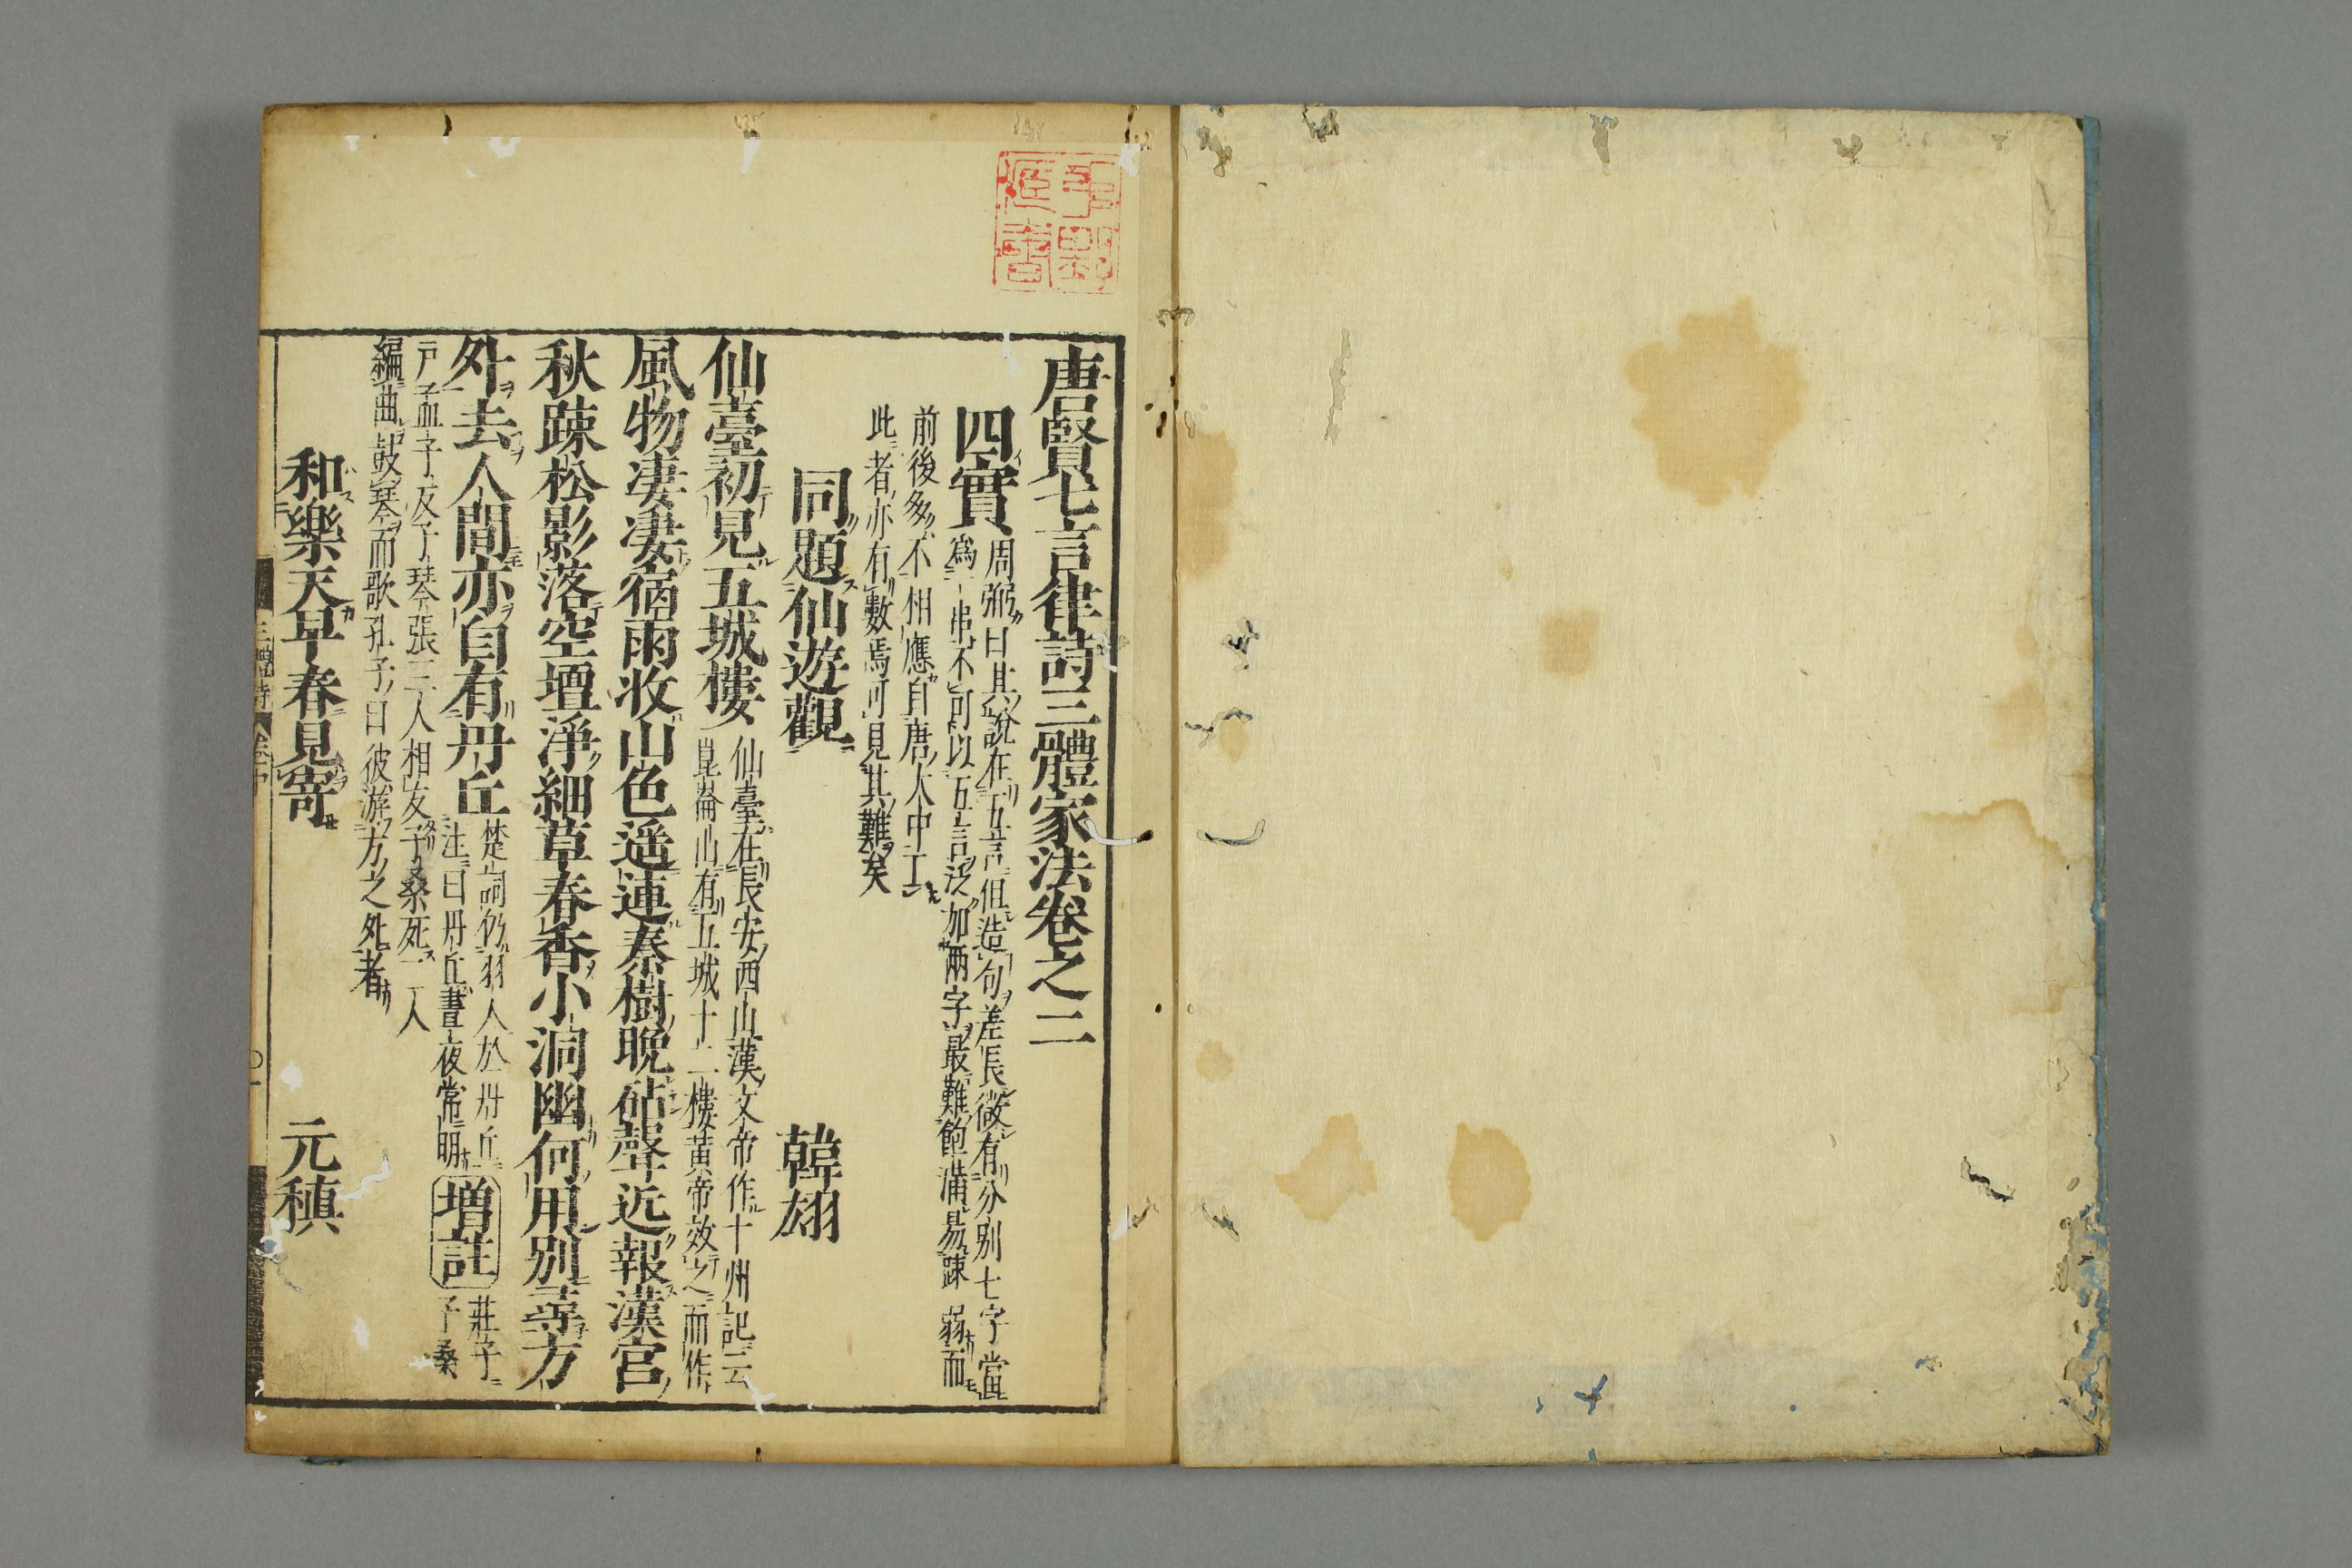 唐賢七言律詩三體家法卷之二
四實
周弼曰其說在五言但造句差長微有分別七字當
爲一串不可以五言泛加兩字最難飽滿易疎弱而
前後多不相應自唐人中工
此者亦有數焉可見其難矣
同題仙遊觀 韓翃
仙臺初見五城樓
仙臺在長安西山漢文帝作十州記云
崑崙山有五城十二樓黃帝效之而作
風物凄凄宿雨收山色遥連秦樹晚砧聲近報漢宮
秋疎松影落空壇淨細草春香小洞幽何用別尋方
外去人間亦自有丹丘
楚詞仍羽人於丹丘
注曰丹丘晝夜常明
増註
莊子
子桑
戶孟子反子琴張三人相友子桑死二人
編曲鼓琴而歌孔子曰彼游方之外者
和樂天早春見寄 元稹
三體詩 卷中